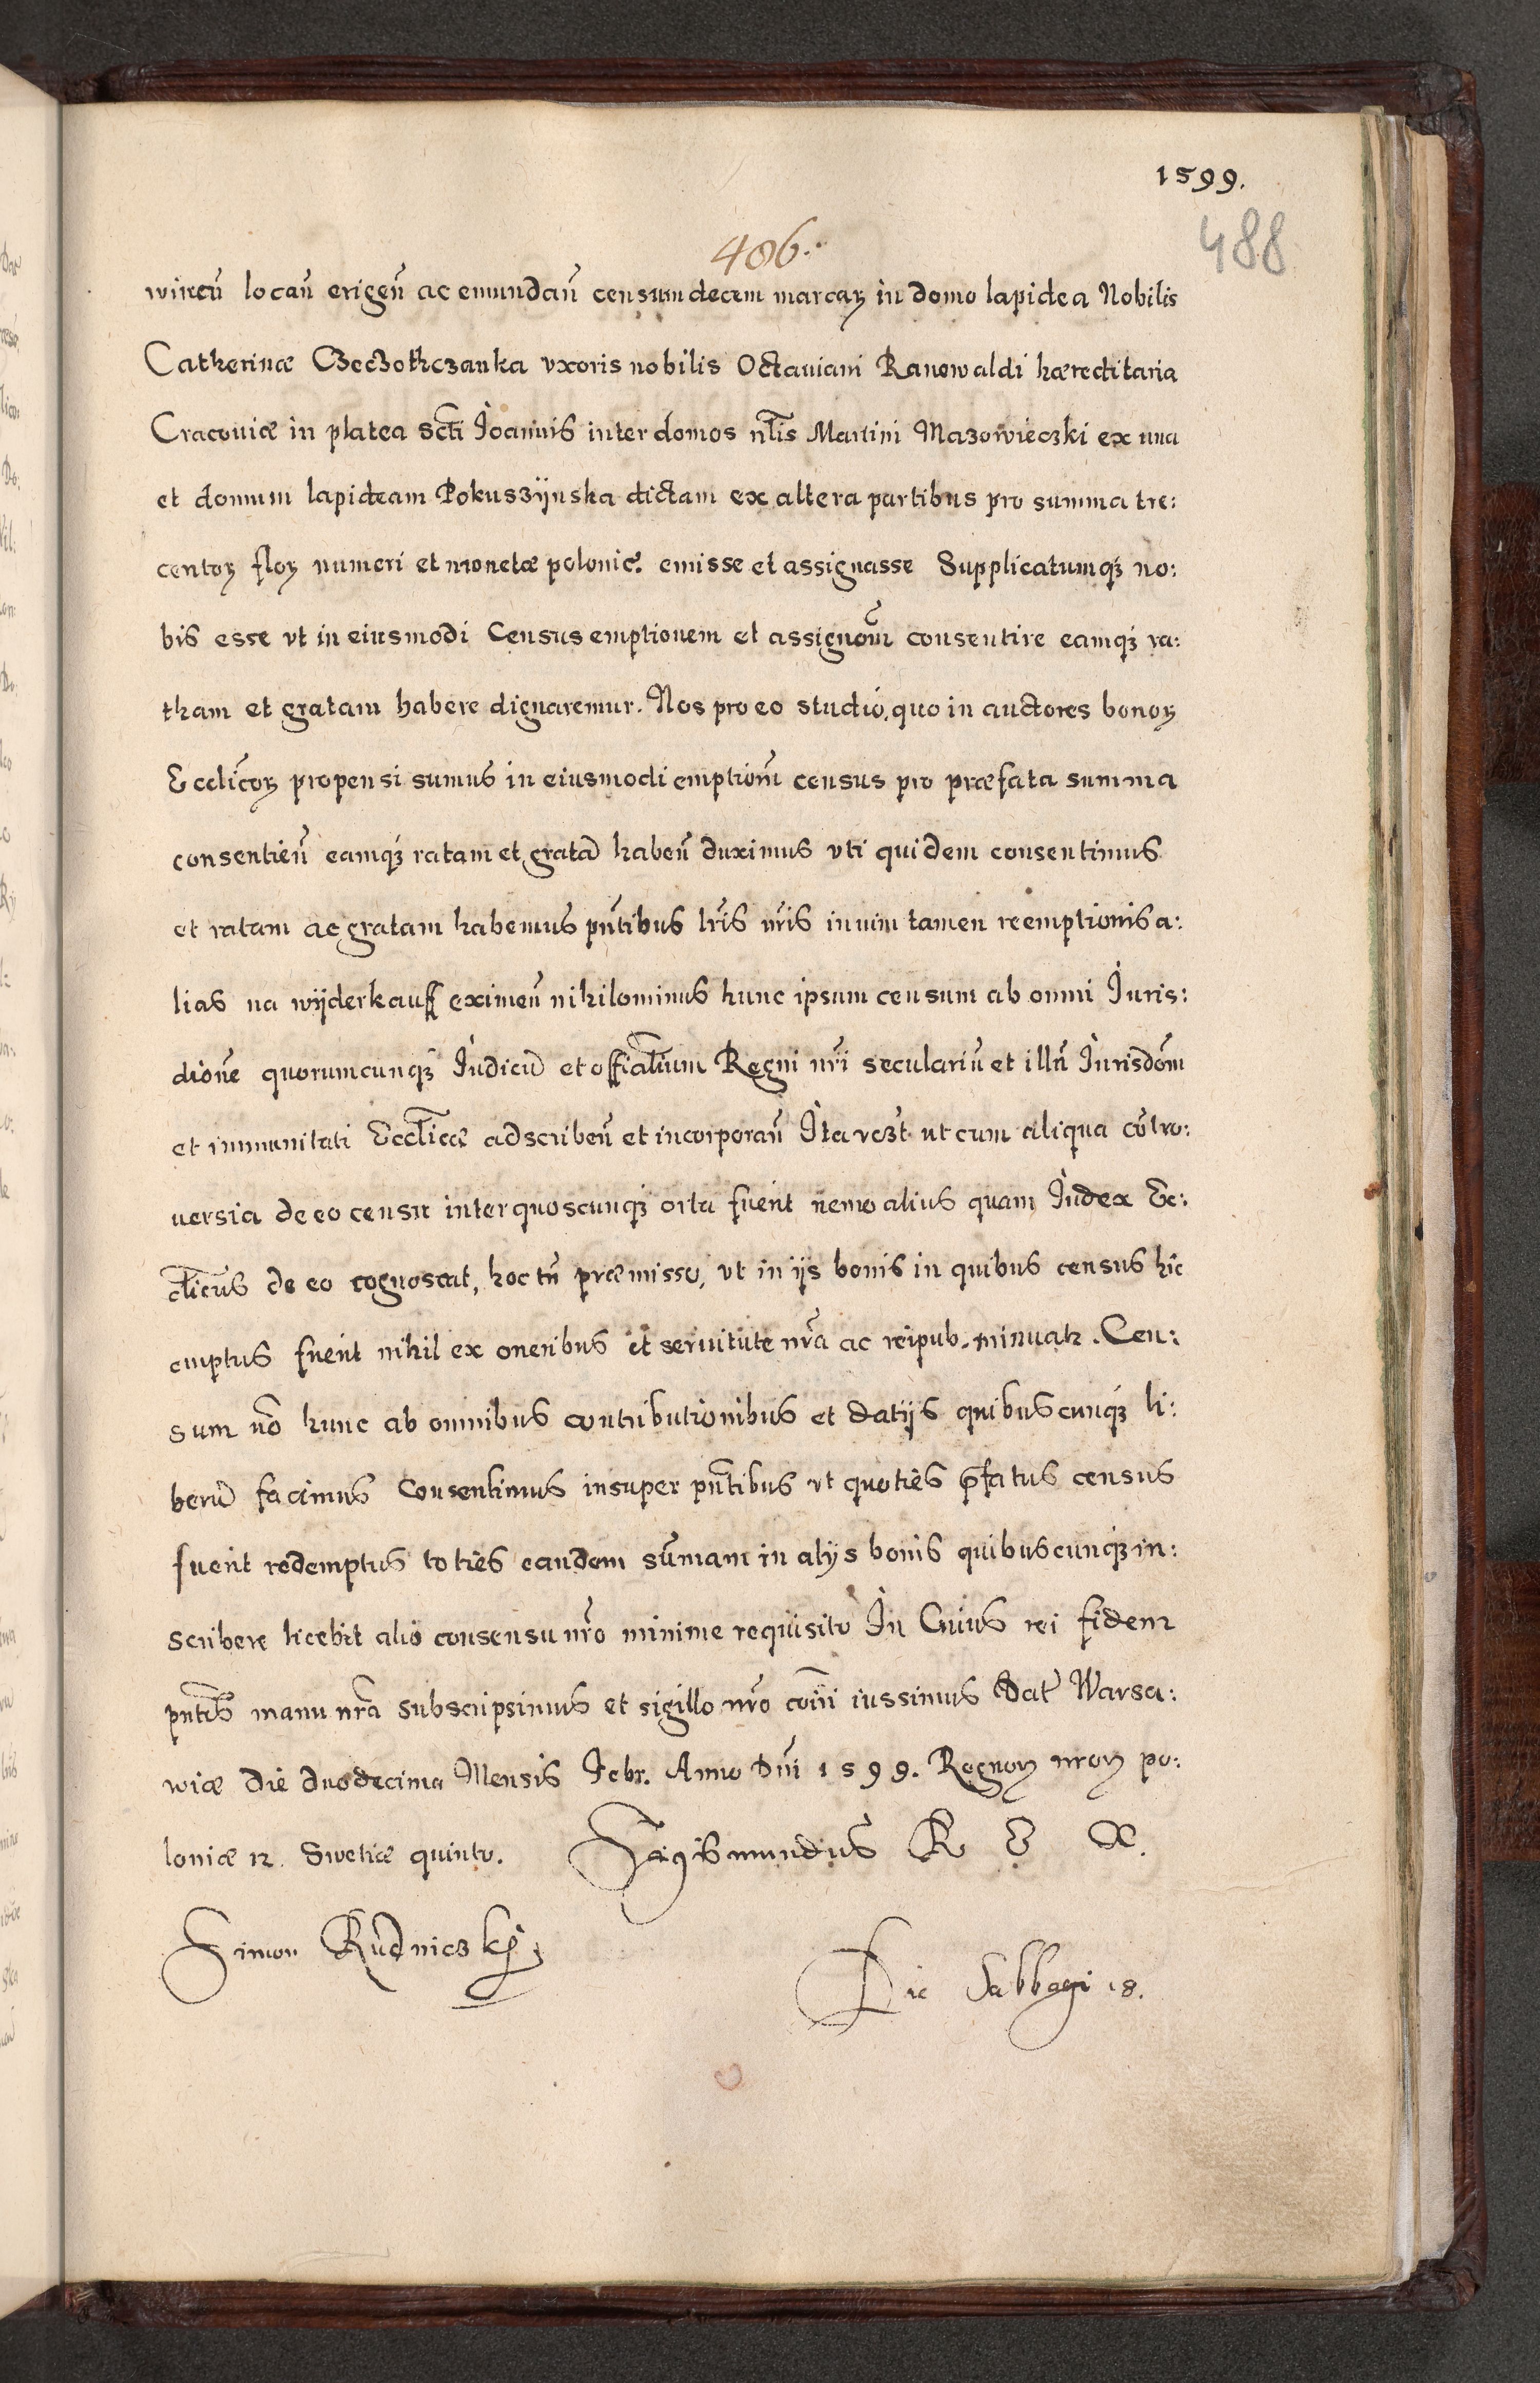 1599.
488
406.
locañ erigeñ ac emundañ censum decem marcaꝝ in domo lapidea Nobilis
Catherinæ Czeczothczanka vxoris nobilis Octauiani Ranowaldi hæreditaria
Cracouiæ in platea Scti Joannis inter domos nłis Martini Mazowieczki ex una
et domum lapideam Pokuszÿnska dictam ex altera partibus pro summa tre:
centoꝝ floꝝ numeri et monetæ polonicę. emisse et assignasse Supplicatumqꝫ no:
bis esse vt in eiusmodi Census emptionem et assignom̃ consentire eamqꝫ ra:
tham et gratam habere dignaremur. Nos pro eo studio, quo in auctores bonoꝝ
Ecclicoꝝ propensi sumus in eiusmodi emptiom̃ census pro præfata summa
consentieñ eamqꝫ ratam et gratã habeñ duximus vti quidem consentimus
et ratam ac gratam habemus pñtibus lr̃is nr̃is in vim tamen reemptionis a:
lias na wÿderkauff eximeñ nihilominus hunc ipsum censum ab omni Juris:
dione quorumcunqꝫ Judicũ et officialium Regni nr̃i seculariũ et illñ Jurisdom̃
et immunitati Eccl̃icæ adscribeñ et incorporañ Ita vczt ut cum aliqua cõtro:
uersia de eo censu inter quoscunqꝫ orta fuerit nemo alius quam Judex Ec:
cl̃icus de eo cognoscat, hoc tñ præmisso, vt in ijs bonis in quibus census hic
emptus fuerit nihil ex oneribus et seruitute nr̃a ac reipub. minuatr. Cen:
sum vo hunc ab omnibus contributionibus et datijs quibuscunqꝫ li:
berũ facimus Consentimus insuper pñtibus vt quoties p̃fatus census
fuerit redemptus toties eandem sum̃am in alijs bonis quibuscunqꝫ in:
scribere licebit alio consensu nr̃o minime requisito In Cuius rei fidem
pñtes manu nr̃a subscripsimus et sigillo nr̃o com̃i iussimus Dat Warsa:
wiæ die duodecima Mensis Febr. Anno Dñi 1599. Regnoꝝ nroꝝ po:
loniæ 12. Swetiæ quinto. Sigismundus R E X.
Simon Rudniczkÿ
Die Sabbagi 18.